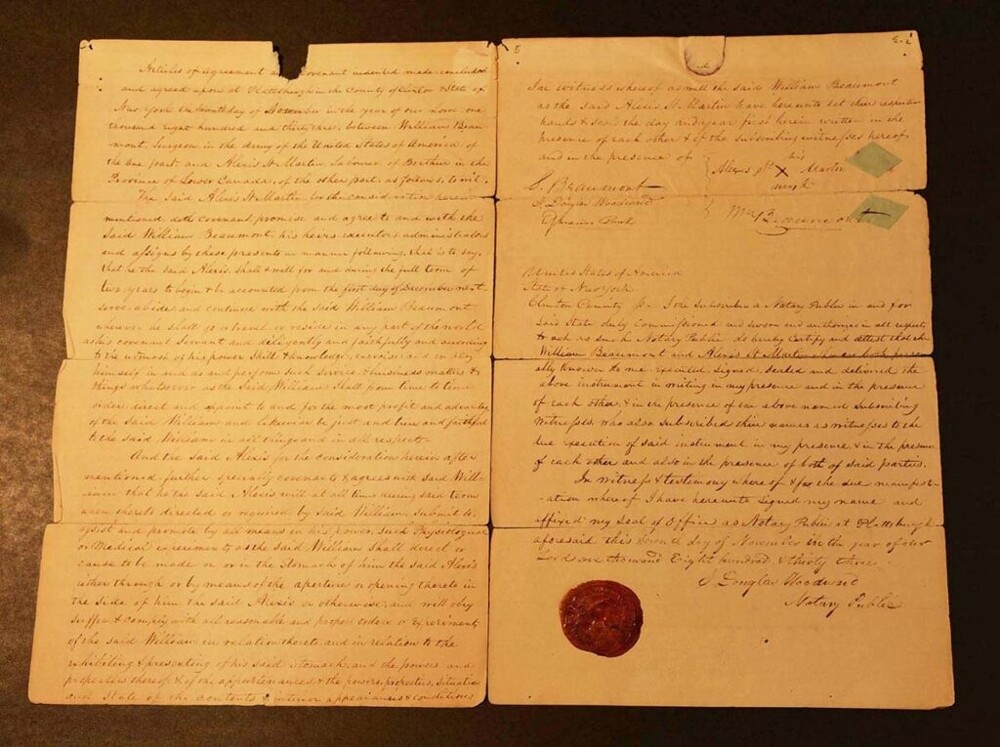 Articles of agreement and covenant indented made concluded
and agreed upon at Plattsburgh in the County of Clinton & State of
New York the day of in the year of our Lord one
thousand eight hundred and thirty three, between William Beau-
mont, Surgeon in the army of the United States of America, of
the one part, and Alexis St Martin laborer of Berthier in the
Province of Lower Canada, of the other part, as follows, to wit.
The Said Alexis St Martin for the consideration herein
mentioned, doth covenant, promise and agree to and with the
Said William Beaumont, his heirs executors administrators
and assigns by these presents in manner following, that is to say,
that he the said Alexis shall & will for and during the full term of
two years to begin & be accounted from the first day of December next
serve, abide and continue with the Said William Beaumont
wherever he shall go travel or reside in any part of the world
as his covenant Servant and deligently and faithfully and according
to the utmost of his power Skill & knowledge, exercise and employ
himself in and do and perform such service & business matters &
things whatsoever as the Said William Shall from time to time
order direct and appoint to and for the most profit and advantage
of the Said William and likewise be just and true and faithful
to the said William in all things and in all respects
And the said Alexis for the consideration herein after
mentioned further specially covenants & agrees with Said Will-
iam that he the said Alexis will at all times during said term
when thereto directed or required by said William, submit to,
assist and promote by all means in his power, such Physiological
or Medical experiments as the said William Shall direct or
cause to be made on or in the Stomach of him the said Alexis
either through or by means of the aperture or opening thereto in
the side of him the said Alexis or otherwise, and will obey
suffer & comply with all reasonable and proper orders or experiments
of the said William in relation thereto and in relation to the
exhibiting & presenting of his said Stomach and the powers and
properties thereof & of the appurtenances & the powers, properties, situation
and State of the contents & interior appearances & conditions
In witness whereof as well the said William Beaumont
as the said Alexis St Martin have hereunto set their respective
hands & seals the day and year first herein written in the
presence of each other & of the subscribing witnesses hereof
and in the presence of
his
Alexis St X Martin
mark
S. Beaumont
J Douglas Woodward
Wm Beaumont
Ephraim
United States of America
State of New York
Clinton County ss I the Subscriber a Notary Public in and for
Said State duly Commissioned and sworn and authorized in all respects
to act as such Notary Public do hereby Certify and attest that the
William Beaumont and Alexis St Martin who are both person-
ally known to me executed, signed, sealed and delivered the
above instrument in writing in my presence and in the presence
of each other, & in the presence of the above named subscribing
Witnesses, who also subscribed their names as witnesses to the
due execution of said instrument in my presence & in the presence
of each other and also in the presence of both of said parties.
In witness & testimony whereof & for the due manifest-
-ation whereof I have hereunto signed my name and
affixed my Seal of Office as Notary Public at Plattsburgh
aforesaid this Seventh day of November in the year of our
Lord one thousand Eight hundred & thirty three
J Douglas Woodward
Notary Public